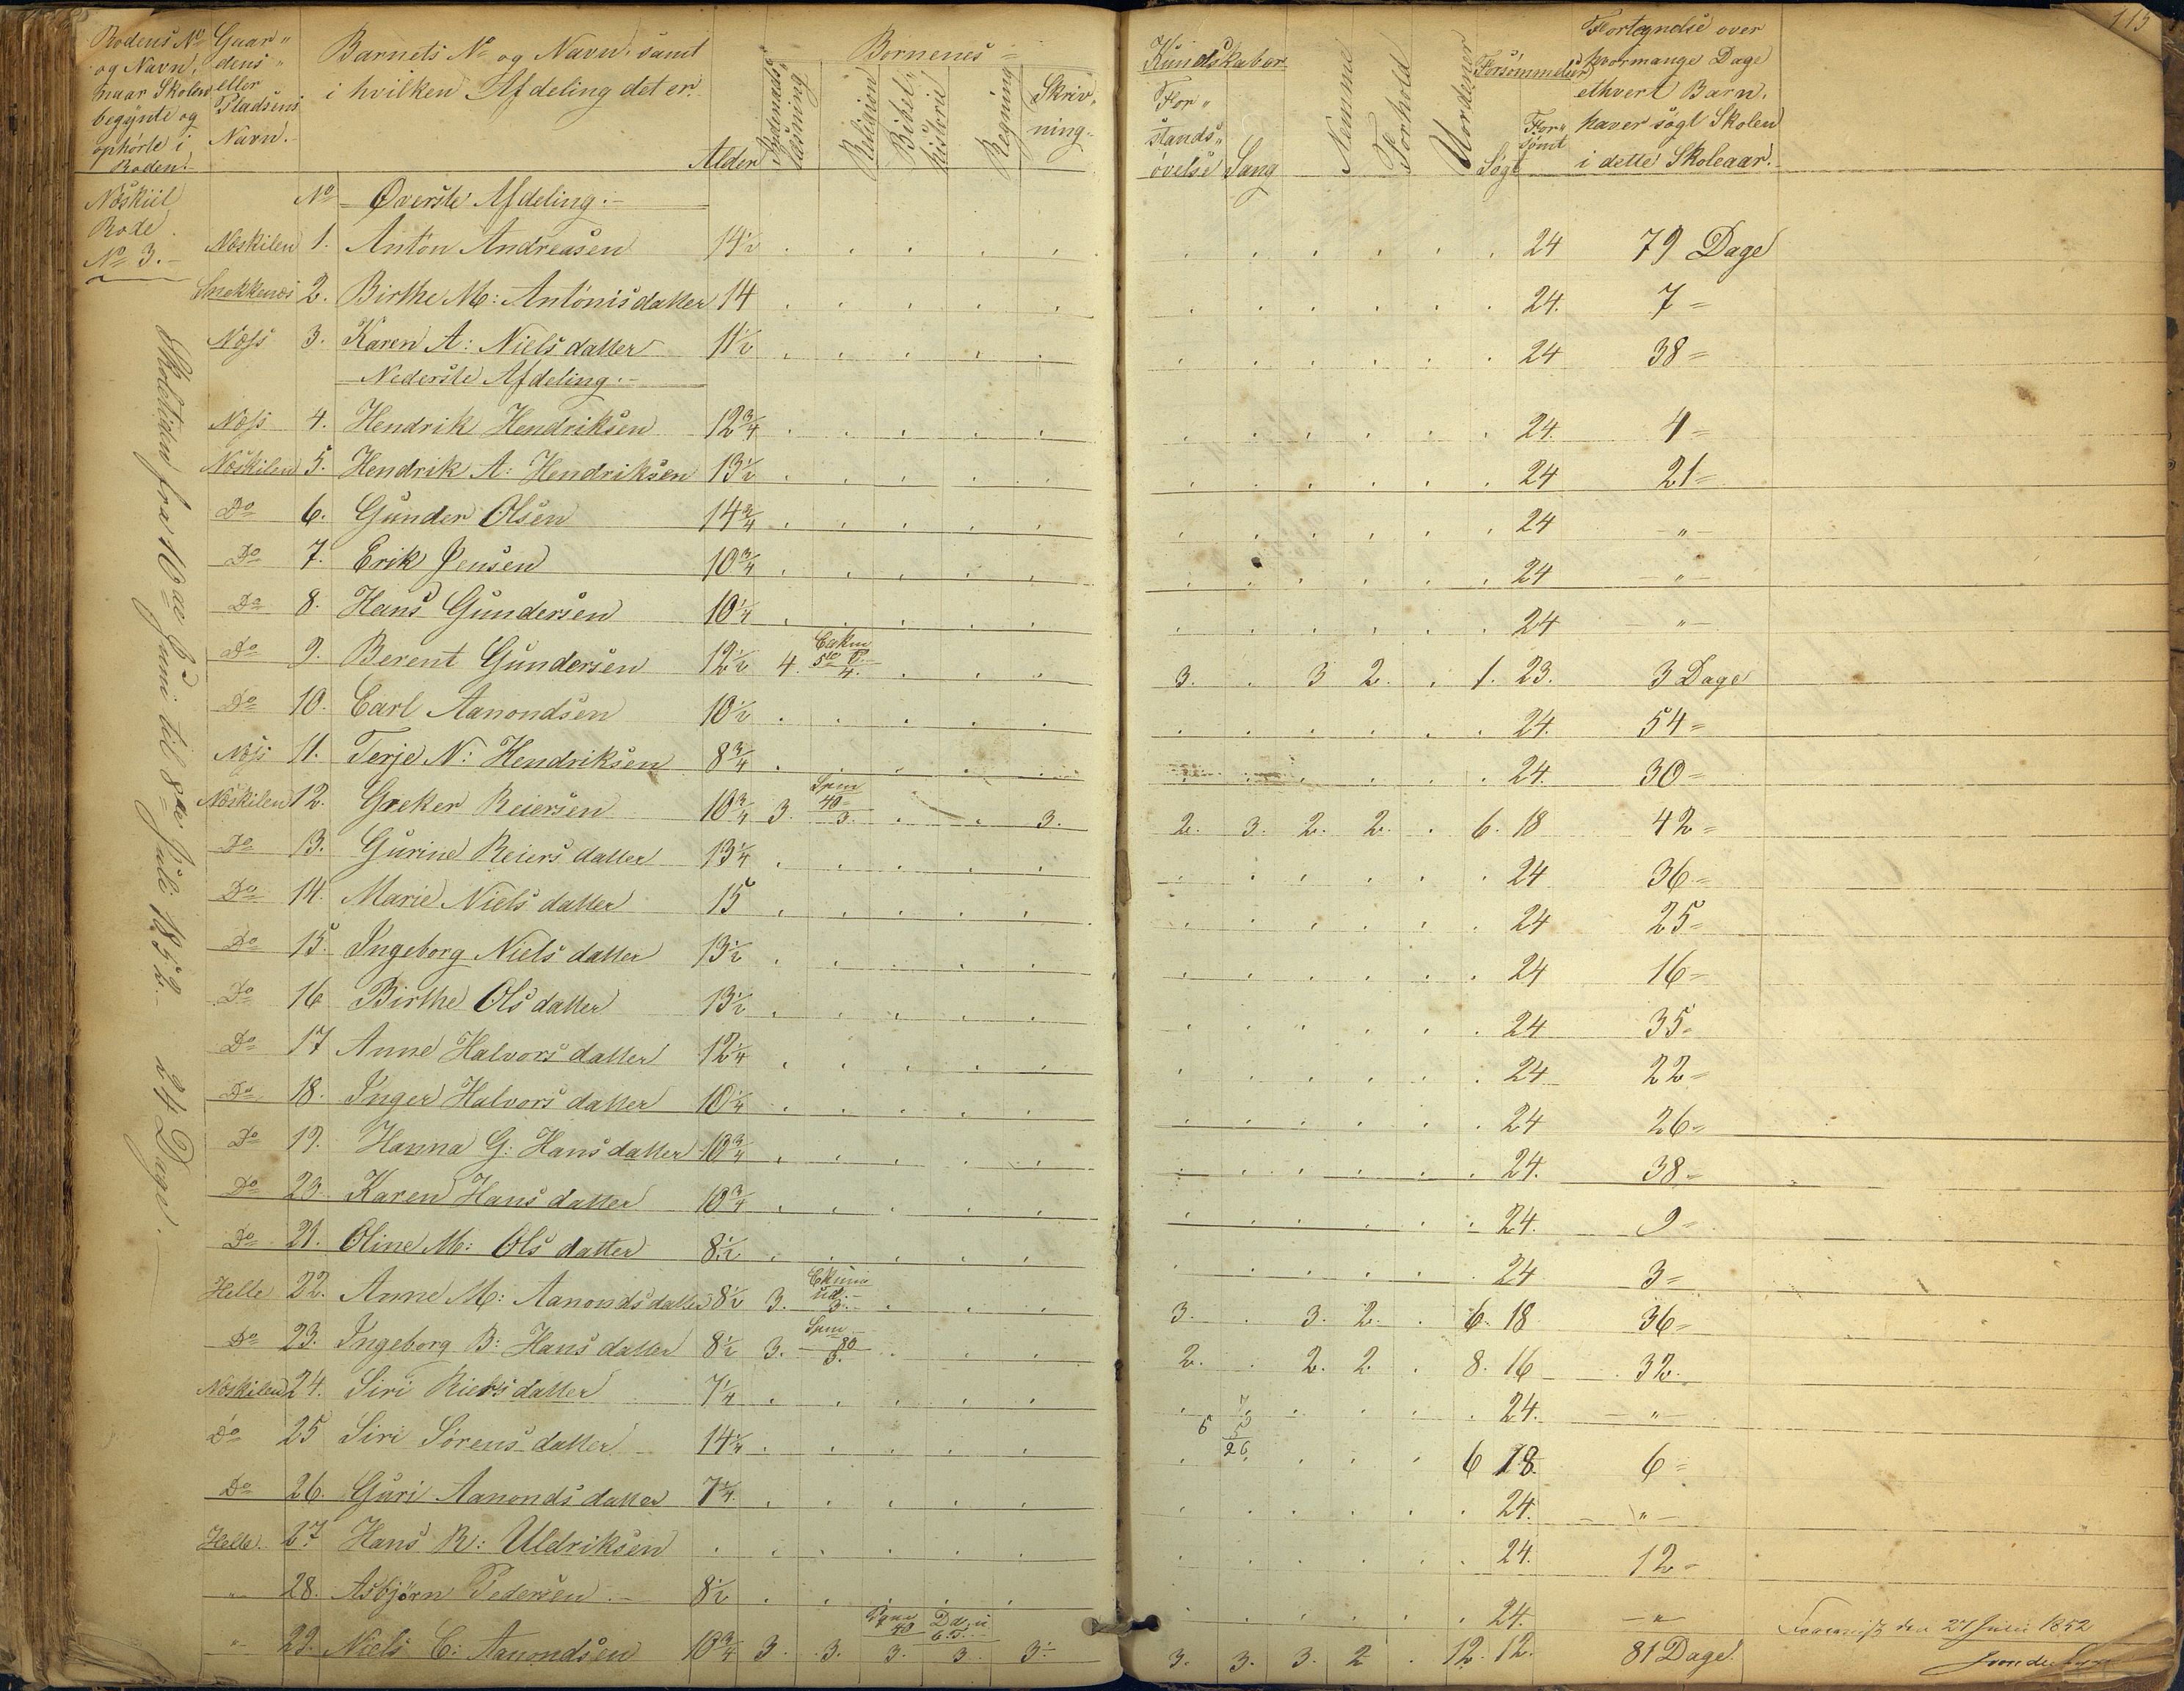 115
Rodens No og Navn, naar Skolen begynte og ophørte i Roden.
Gaardens eller Pladsens Navn.
Barnets No og Navn, samt i hvilken Afdeling det er.
Alder
Børnenes
læsning
Religion
Bibelhistorie
Regning
Skrivning.
Kundskaber
Forstandsøvelse
Sang
Nemme
Forhold
Uordener
Forsømmelser
Søgt
Forsømt
Fortegnelse over hvormange Dage ethvert Barn haver søgt Skolen i dette Skoleaar.
Næskiil Rode No 3.
Skoletiden fra 10de Juni til 8de Juli 1852. 24 Dage.
No Øverste Afdeling.
Næskilen 1. Anton Andreasen 14½ 24 79 Dage
Snekkenæs 2. Birthe M: Antonisdatter 14 24. 7 =
Næss 3. Karen A: Nielsdatter 11½ 24 38 =
Nederste Afdeling.
Næss 4. Hendrik Hendriksen 12¾ 24. 4 =
Næskilen 5. Hendrik A: Hendriksen 13½ 24 21 =
Do 6. Gunder Olsen 14¾ 24 "
Do 7. Erik Jensen 10¾ 24 "
Do 8. Hans Gundersen 10¼ 24 "
Do 9. Berent Gundersen 12½ 4. 4. 3. 3 2. 1. 23. 3 Dage
Do 10. Carl Aanondsen 10½ 24. 54 =
Næss 11. Terje N: Hendriksen 8¾ 24. 30 =
Næskilen 12. Greker Reiersen 10¾ 3. Spm 40 3. 3. 2. 3. 2. 2. 6. 18 42 =
Do 13. Gurine Reiersdatter 13¼ 24 36 =
Do 14. Marie Nielsdatter 15 24 25 =
Do 15. Ingeborg Nielsdatter 13½ 24 16 =
Do 16 Birthe Olsdatter 13½ 24 35 =
Do 17 Anne Halvorsdatter 12¼ 24 22 =
Do 18. Inger Halvorsdatter 10¼ 24 26 =
Do 19. Hanna G: Hansdatter 10¾ 24. 38 =
Do 20. Karen Hansdatter 10¾ 24. 9 =
Do 21. Oline M: Olsdatter 8½ 24 3 =
Helle 22. Anne M: Aanondsdatter 8½ 3. ud. 3. 3. 3. 2. 6. 18 36 =
Do 23. Ingeborg B: Hansdatter 8½ 3. Spm 80 3. 2. 2. 2. 8. 16 32.
Næskilen 24. Siri Riersdatter 7¼ 24. "
Do 25 Siri Sørensdatter 14¼ 6 18 6 =
Do 26. Guri Aanondsdatter 7¼ 24. "
Helle. 27 Hans R: Uldriksen 24. 12 =
" 28. Asbjørn Pedersen 8½ 24. "
" 29. Niels C: Aanondsen 10¾ 3. 3. 40 3. 3. 3. 3. 3. 3. 2 12. 12. 81 Dage.
den 27 Juli 1852